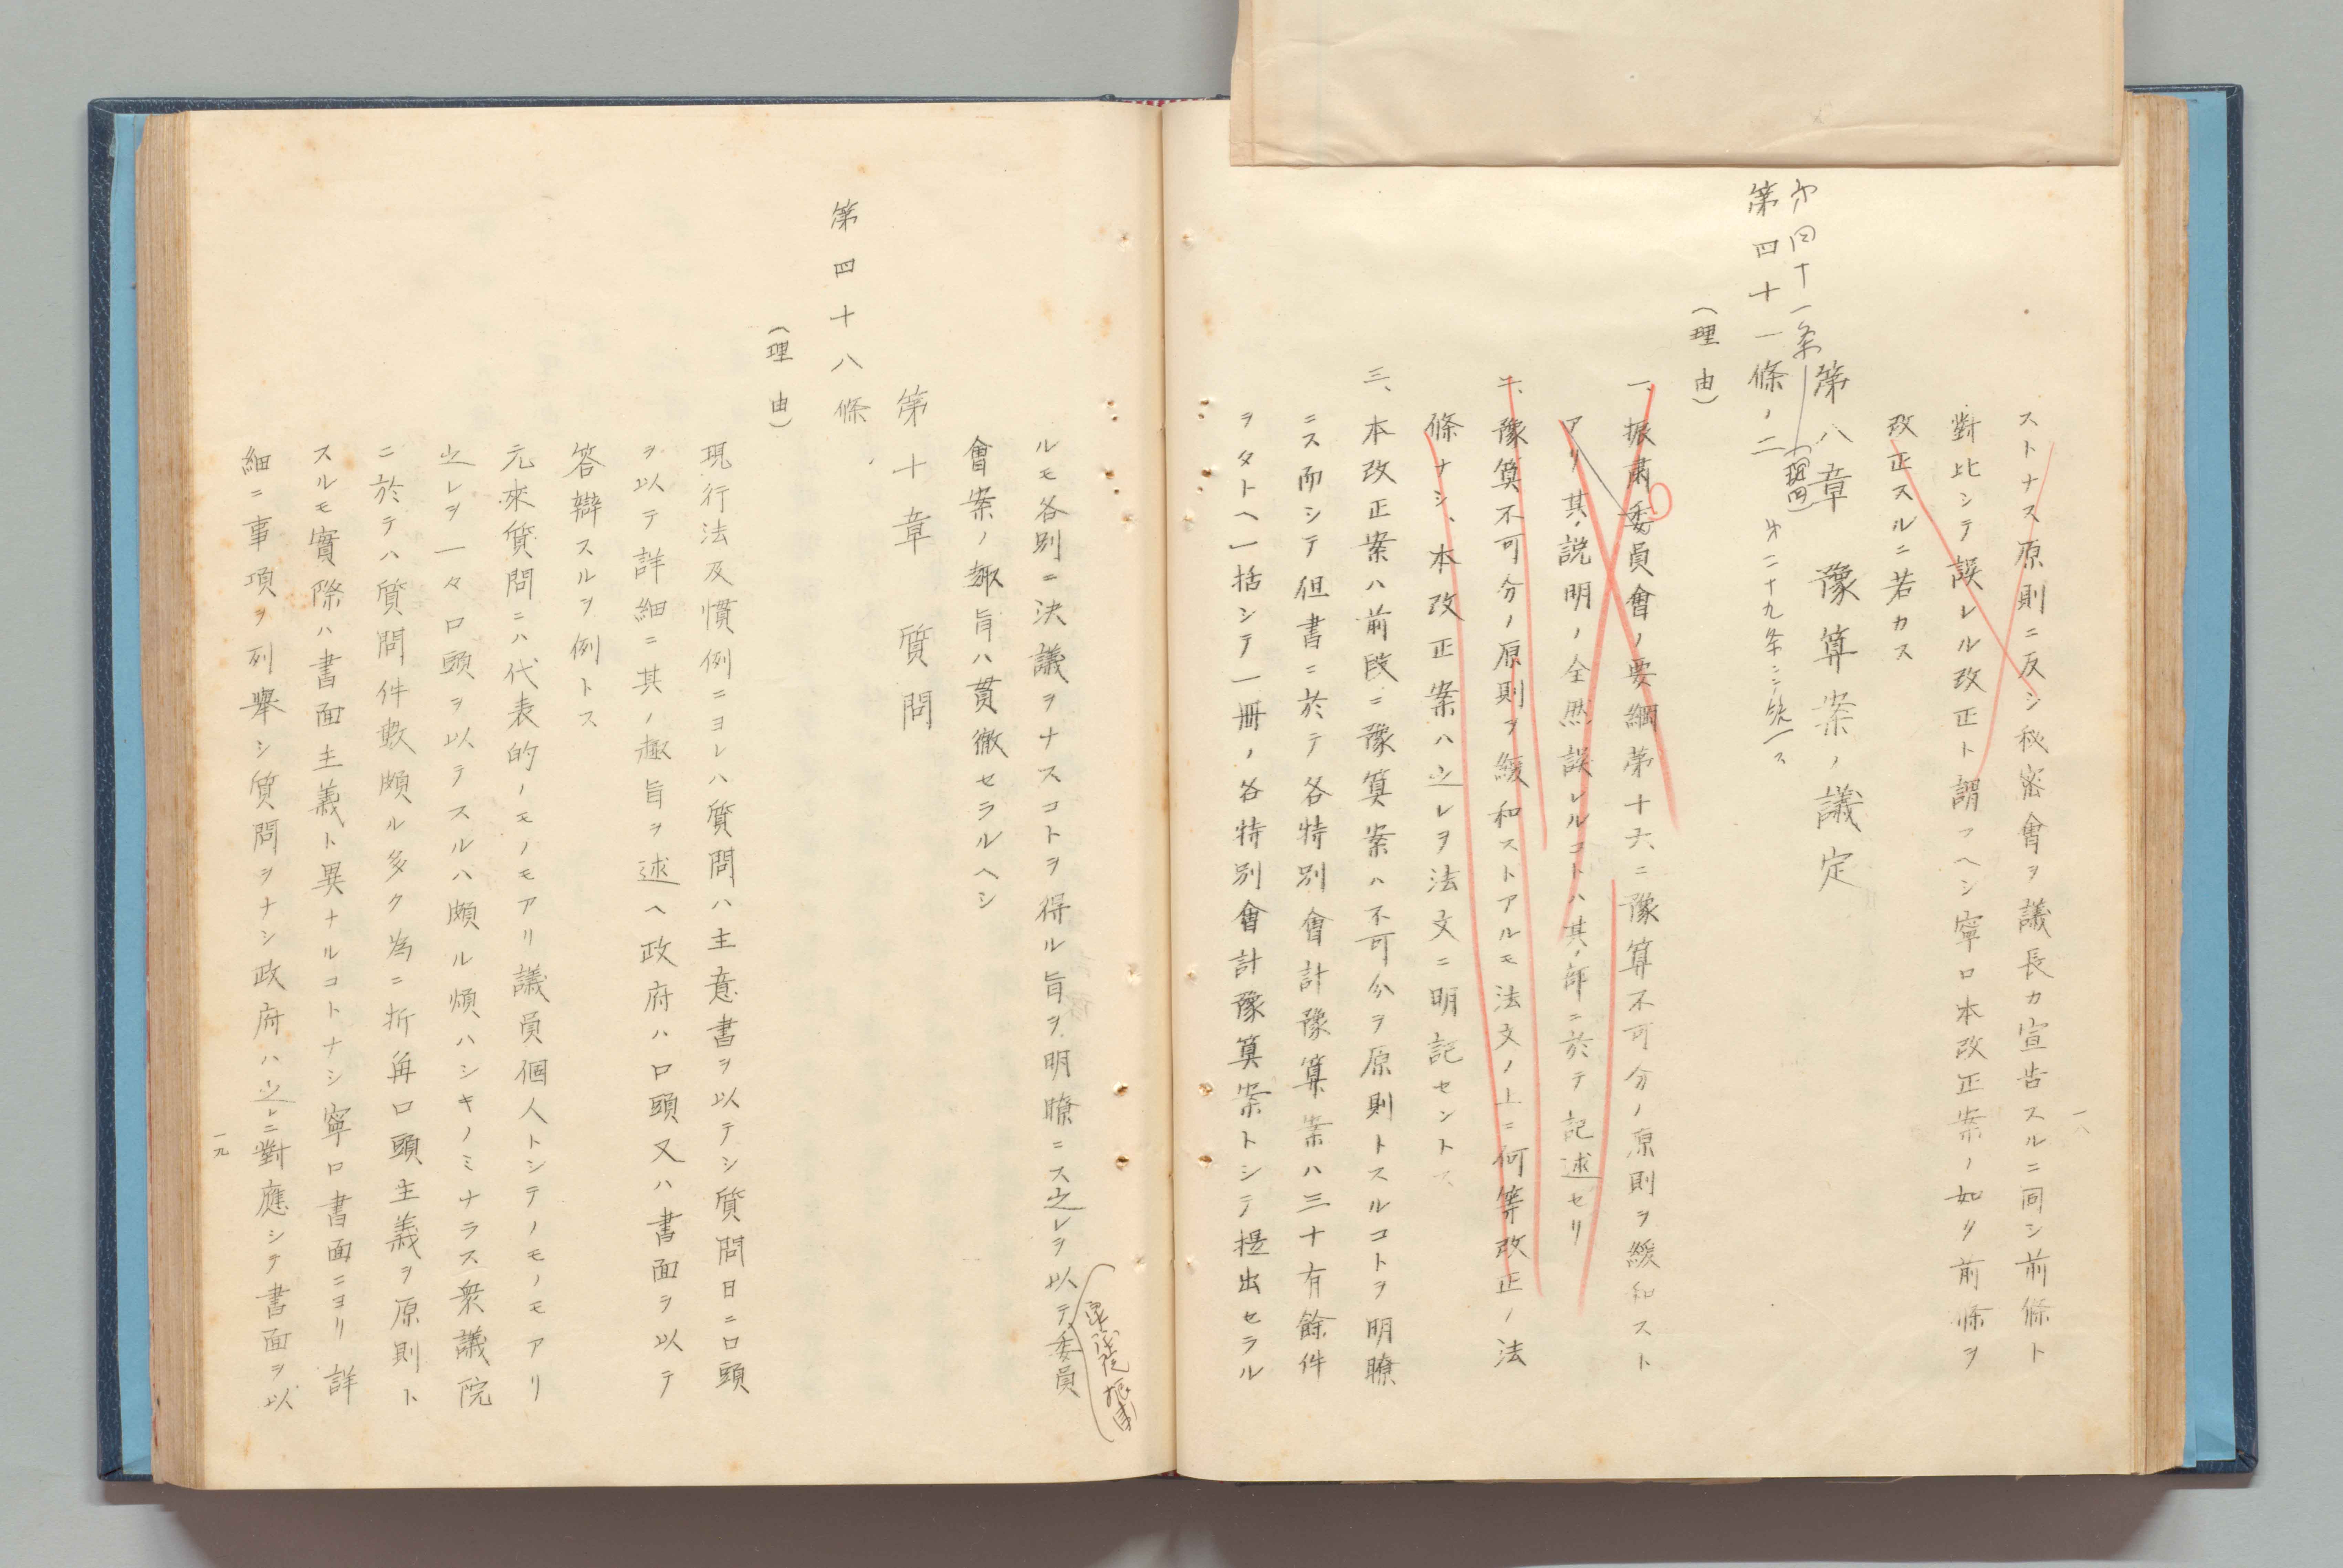 ストナス原則ニ反シ秘密會ヲ議長カ宣告スルニ同シ前條ト
對比シテ誤レル改正ト謂フヘシ寧ロ本改正案ノ如ク前條ヲ
改正スルニ若カス
第八章 豫算案ノ議定
第四十一条
第四十一條ノ二
第二十九条ニ統一ス
(理由)
一、振肅委員會ノ要綱第十六ニ豫算不可分ノ原則ヲ緩和スト
アリ其ノ説明ノ全然誤レルコトハ其ノ部ニ於テ記述セリ
二、豫算不可分ノ原則ヲ緩和ストアルモ法文ノ上ニ何等改正ノ法
條ナシ、本改正案ハ之レヲ法文ニ明記セントス
三、本改正案ハ前段ニ豫算案ハ不可分ヲ原則トスルコトヲ明瞭
ニス而シテ但書ニ於テ各特別會計豫算案ハ三十有餘件
ヲタトヘ一括シテ一冊ノ各特別會計豫算案トシテ提出セラル
一八
ルモ各別ニ決議ヲナスコトヲ得ル旨ヲ明瞭ニス之レヲ以テ委員
會案ノ趣旨ハ貫徹セラルヘシ
第十章 質問
第四十八條
(理由)
現行法及慣例ニヨレハ質問ハ主意書ヲ以テシ質問日ニ口頭
ヲ以テ詳細ニ其ノ趣旨ヲ述ヘ政府ハ口頭又ハ書面ヲ以テ
答辯スルヲ例トス
元來質問ニハ代表的ノモノモアリ議員個人トシテノモノモアリ
之レヲ一々口頭ヲ以テスルハ頗ル煩ハシキノミナラス衆議院
ニ於テハ質問件數頗ル多ク為ニ折角口頭主義ヲ原則ト
スルモ實際ハ書面主義ト異ナルコトナシ寧ロ書面ニヨリ詳
細ニ事項ヲ列擧シ質問ヲナシ政府ハ之レニ對應シテ書面ヲ以
一九